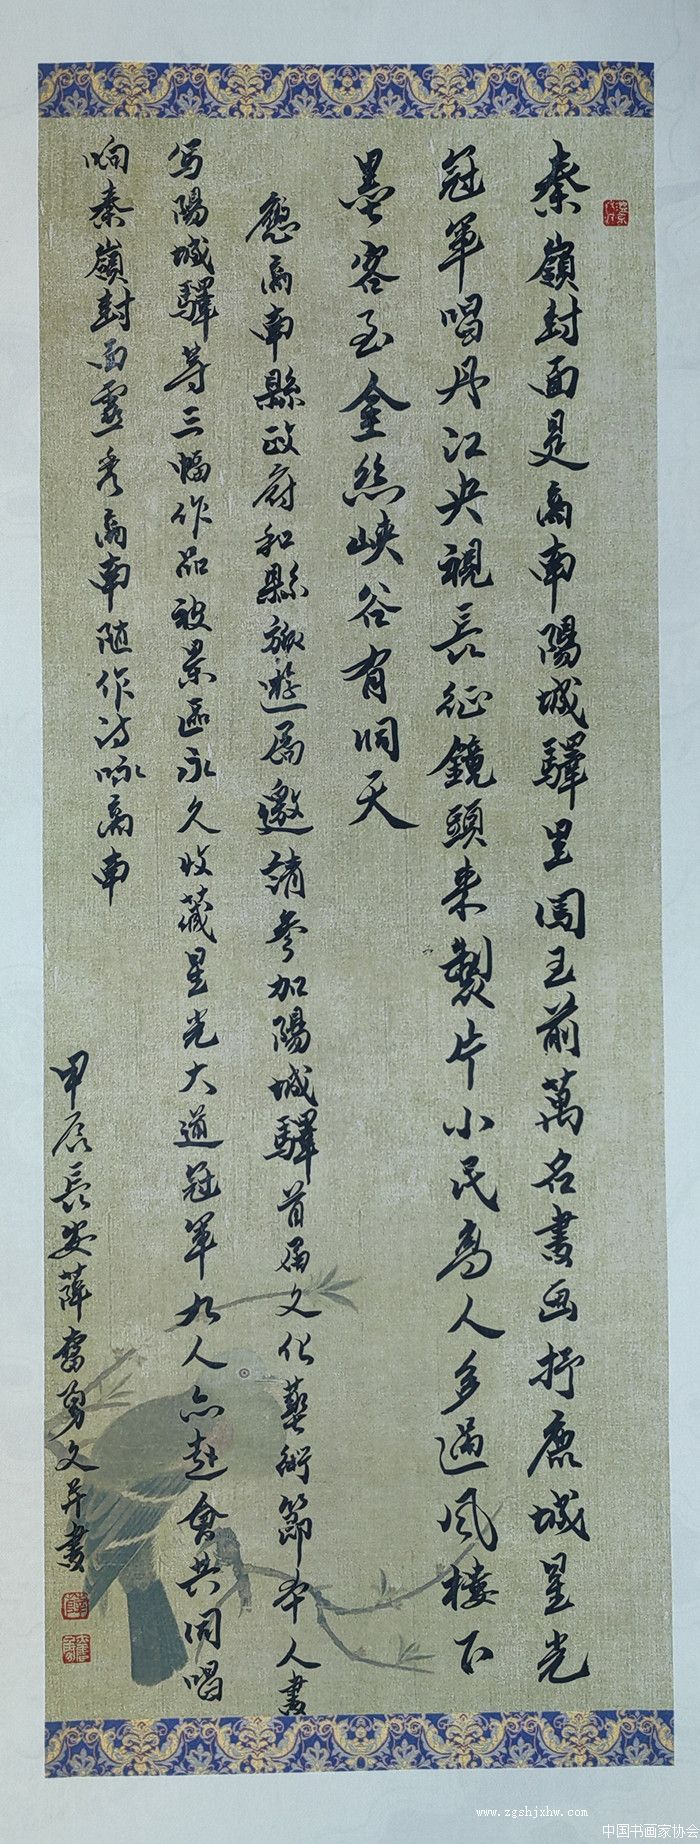 秦嶺封面是商南陽城驛里闖王前萬名書畫抒鹿城星光
冠軍唱丹江央視長征鏡頭来製片小民高人多過風樓下
墨客至金絲峡谷有洞天
應商南縣政府和縣旅遊局邀請參加陽城驛首届文化藝術節本人書
写陽城驛等三幅作品被景區永久收藏星光大道冠軍九人亦赴會共同唱
响秦嶺封面靈秀商南随作诗咏商南
甲辰長安薛奮勇文并書
www.zgshjxhw.com
中国书画家协会